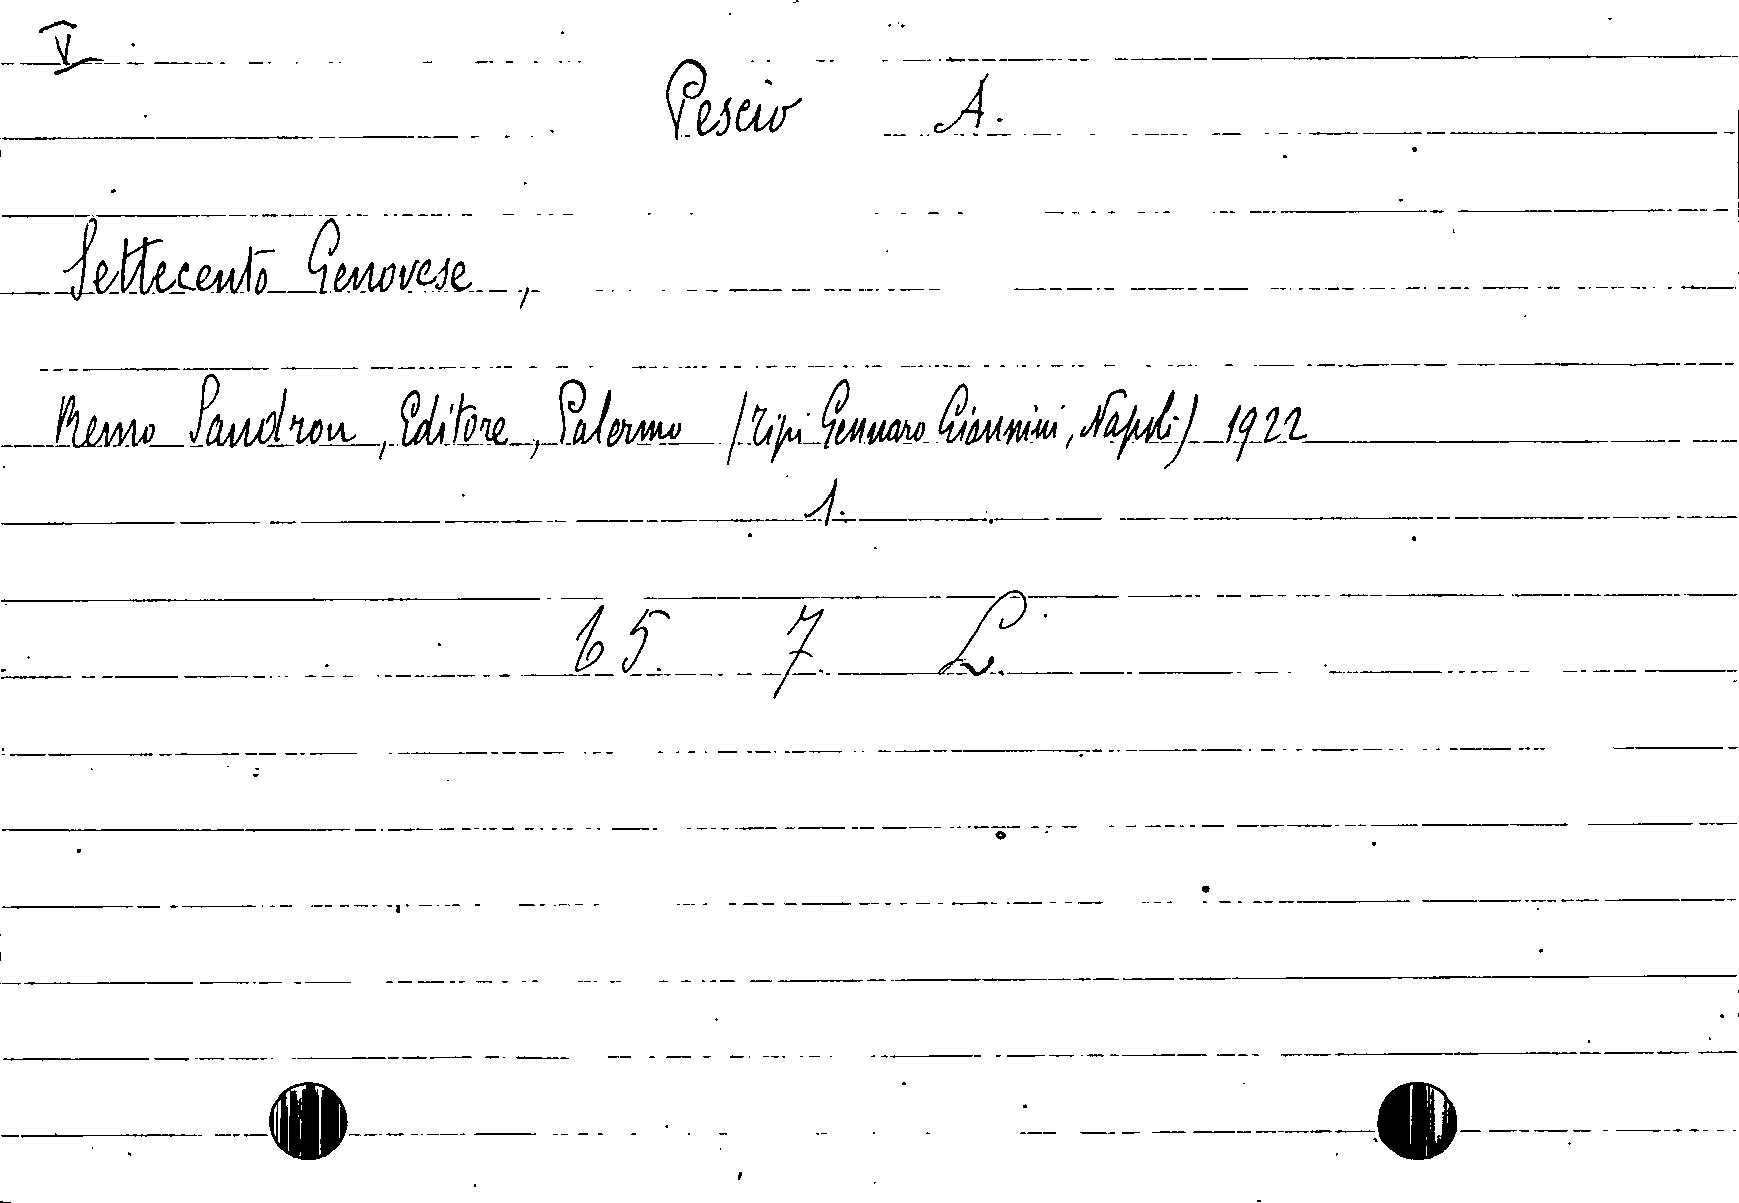 V
Pescio A.
Settecento Genovese,
Remo Sandron, Editore, Palermo (Tipi Gennaro Giannini, Napoli) 1922
1.
65. 7. L.